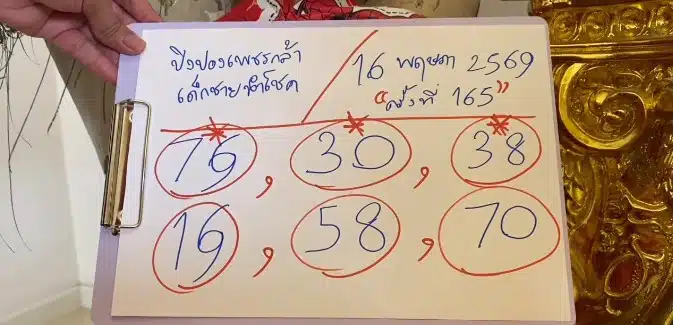 ปิงปองเพชรกล้า
เด็กชายนำโชค
16 พฤษภา 2569
"ครั้งที่ 165"
76, 30, 38
16, 58, 70